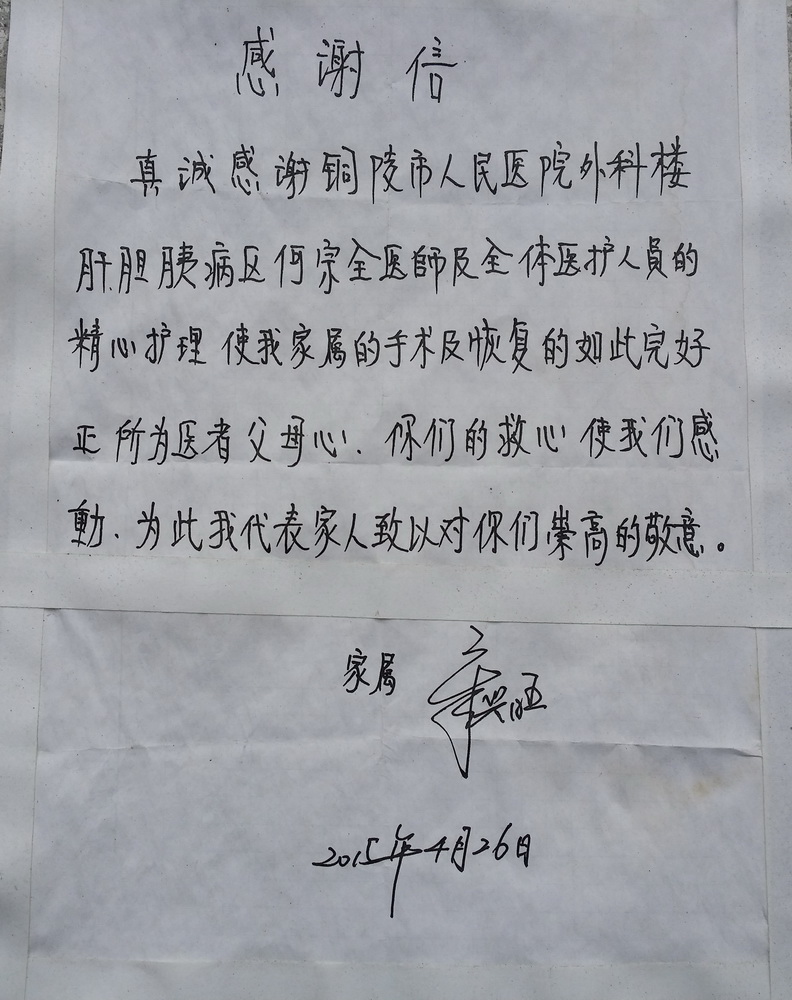 感谢信
真诚感谢铜陵市人民医院外科楼
肝胆胰病区何宗全医師及全体医护人員的
精心护理 使我家属的手术及恢复的如此完好
正所为医者父母心. 你们的救心使我们感
動. 为此我代表家人致以对你们崇高的敬意。
家属 章兴旺
2015年4月26日